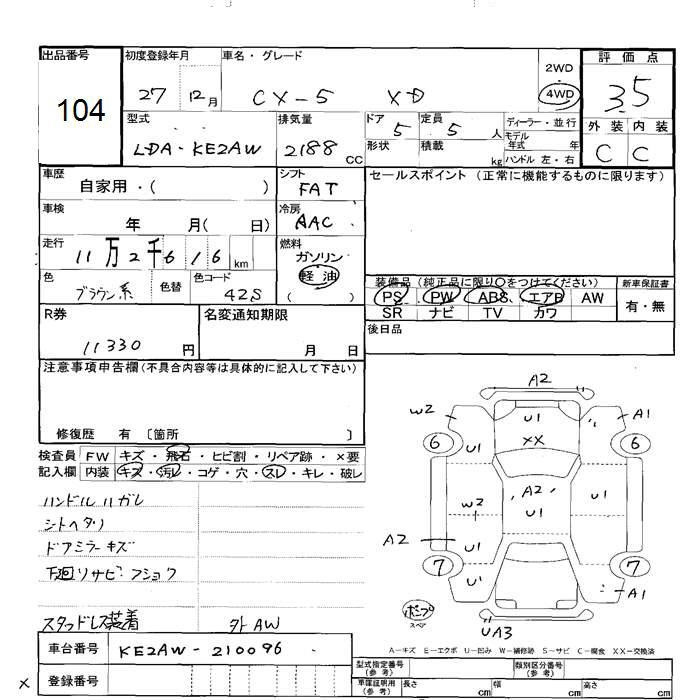 出品番号
104
初度登録年月
27 12月
車名・グレード
CX-5 XD
2WD
4WD
評価点
3.5
外装 内装
C C
型式
LDA-KE2AW
排気量
2188 CC
ドア 5
定員 5 人
形状
積載 kg
ディーラー・並行
モデル年式 年
ハンドル 左・右
車歴
自家用・( )
シフト
FAT
セールスポイント (正常に機能するものに限ります)
車検
年 月( 日)
冷房
AAC
走行
11万2千616 km
燃料
ガソリン
軽油
( )
色
ブラウン系
色替
色コード
42S
装備品 (純正品に限り○をつけてください)
PS PW ABS エアB AW
SR ナビ TV カワ
新車保証書
有・無
R券
11330 円
名変通知期限
月 日
後日品
注意事項申告欄(不具合内容等は具体的に記入して下さい)
修復歴 有 〔箇所 〕
検査員記入欄
FW キズ・飛石・ヒビ割・リペア跡・×要
内装 キズ・汚レ・コゲ・穴・スレ・キレ・破レ
ハンドルハガレ
シートヘタリ
ドアミラーキズ
下廻リサビ・フショク
スタッドレス装着 外AW
A2
W2
U1
XX
A1
6
6
U1
W2
A2
U1
U1
A2
U1
7
7
U1
A1
ポンプ
スペア
UA3
A-キズ E-エクボ U-凹み W-補修跡 S-サビ C-腐食 XX-交換済
車台番号
KE2AW-210096
× 登録番号
型式指定番号(参考)
類別区分番号(参考)
車庫証明用(参考)
長さ cm
幅 cm
高さ cm